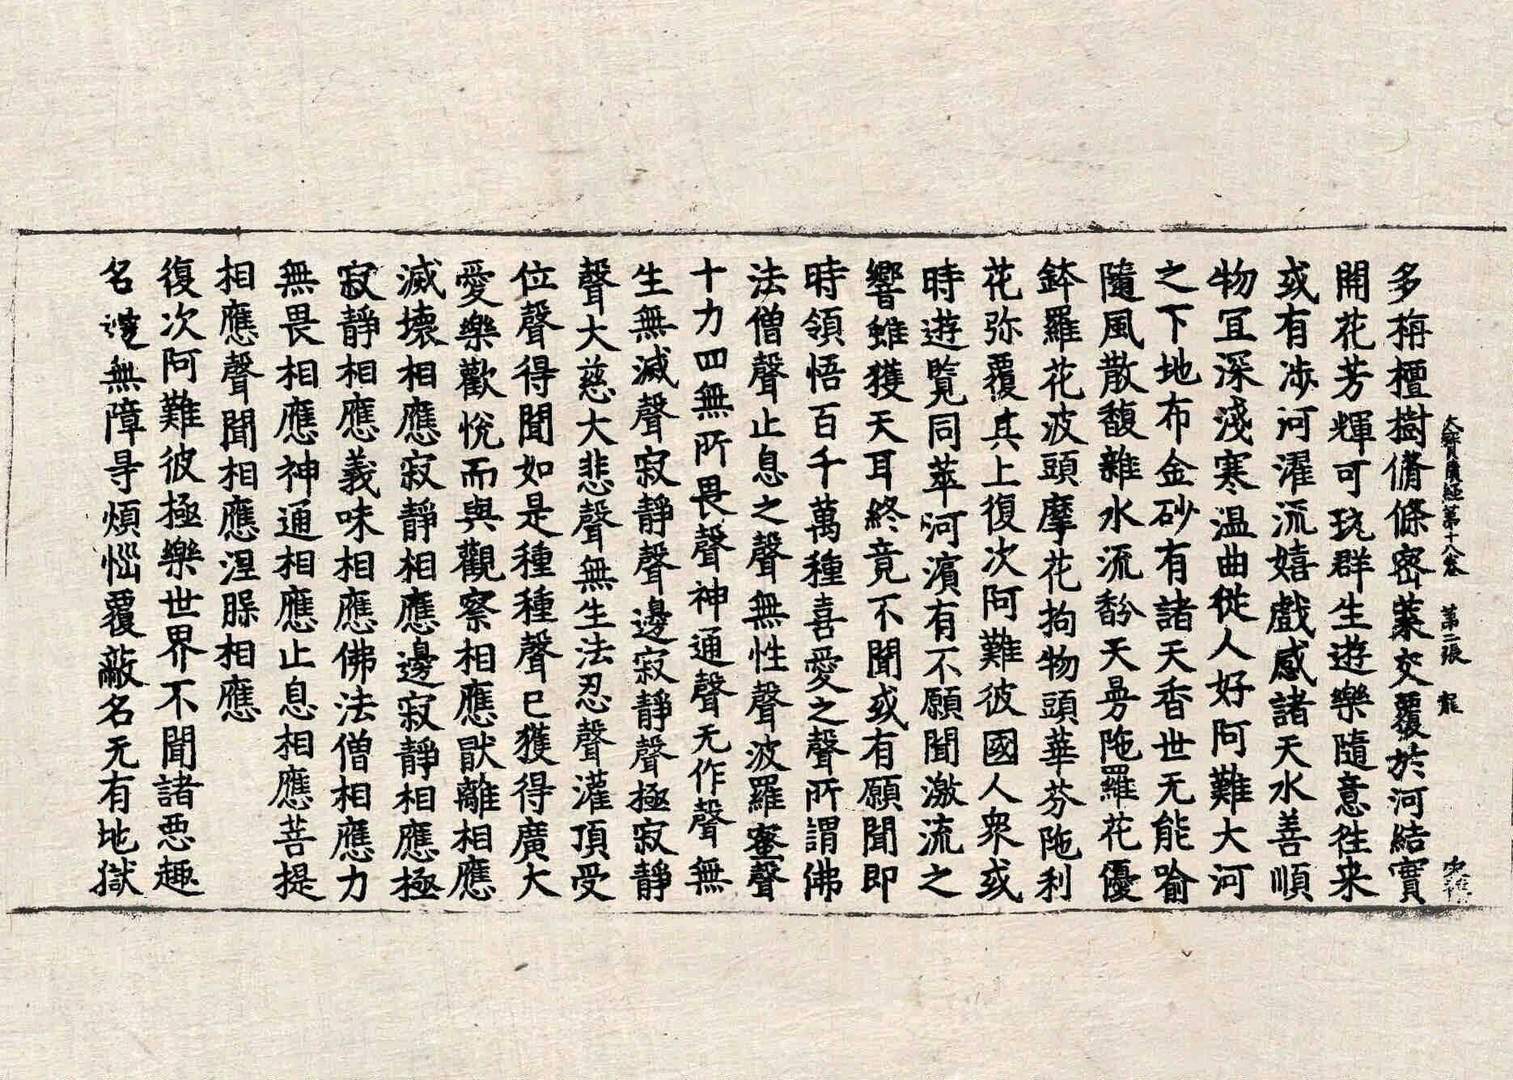 大寶積經第十八卷 第二張 龍
多栴檀樹脩條密葉交覆於河結實
開花芳輝可玩群生遊樂隨意往来
或有渉河濯流嬉戲感諸天水善順
物冝深淺寒温曲從人好阿難大河
之下地布金砂有諸天香世无能喻
隨風散馥雜水流馚天曼陁羅花優
鉢羅花波頭摩花拘物頭華芬陁利
花弥覆其上復次阿難彼國人衆或
時遊覽同萃河濱有不願聞激流之
響雖獲天耳終竟不聞或有願聞即
時領悟百千萬種喜愛之聲所謂佛
法僧聲止息之聲無性聲波羅蜜聲
十力四無所畏聲神通聲无作聲無
生無滅聲寂靜聲邊寂靜聲極寂靜
聲大慈大悲聲無生法忍聲灌頂受
位聲得聞如是種種聲已獲得廣大
愛樂歡悅而與觀察相應猒離相應
滅壊相應寂靜相應邊寂靜相應極
寂靜相應義味相應佛法僧相應力
無畏相應神通相應止息相應菩提
相應聲聞相應涅槃相應
復次阿難彼極樂世界不聞諸惡趣
名邊無障㝵煩惱覆蔽名无有地獄